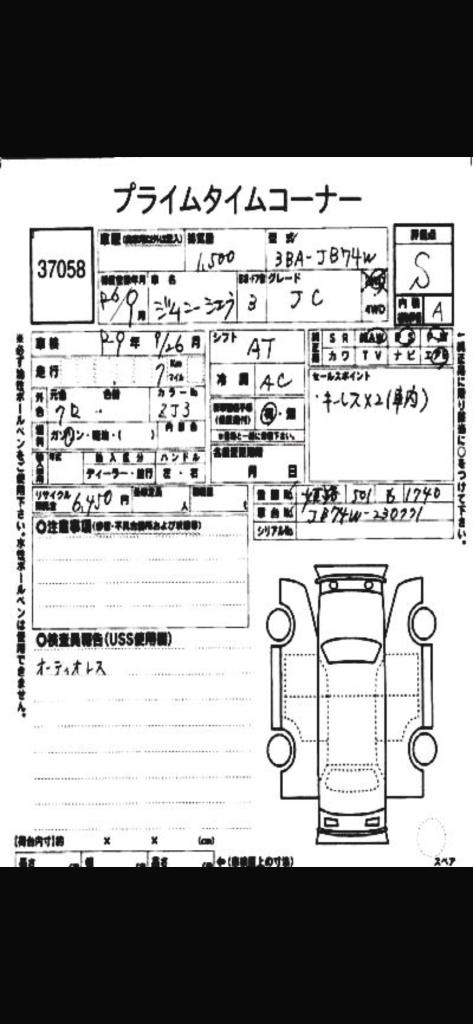 プライムタイムコーナー
37058
排気量
1,500
型式
3BA-JB74W
評価点
S
初度登録年月
R6/9月
車名
ジムニーシエラ
ドア形状
3
グレード
JC
4WD
内装
A
車検
R9年 9/26月
シフト
AT
SR AW PS PW
カワ TV ナビ エアB
走行
7
Km
マイル
冷房
AC
セールスポイント
・キーレスX2(車内)
外色
元色
色替
カラーNo
クロ
ZJ3
内装色
燃料
ガソリン・軽油・( )
有・無
輸入車
年式
輸入区分
ハンドル
ディーラー・並行
左・右
名義変更期限
月 日
リサイクル預託金
6,450円
人
t
登録No.
姫路 501 も 1740
車台No.
JB74W-230771
シリアルNo.
○注意事項(修復・不具合箇所および状態等)
○検査員報告(USS使用欄)
オーディオレス
※必ず油性ボールペンをご使用下さい。水性ボールペンは使用できません。
純正品に限り該当に○をつけて下さい。
【荷台内寸】約 × × (cm)
長さ cm 幅 cm 高さ cm
(車検証上の寸法)
スペア